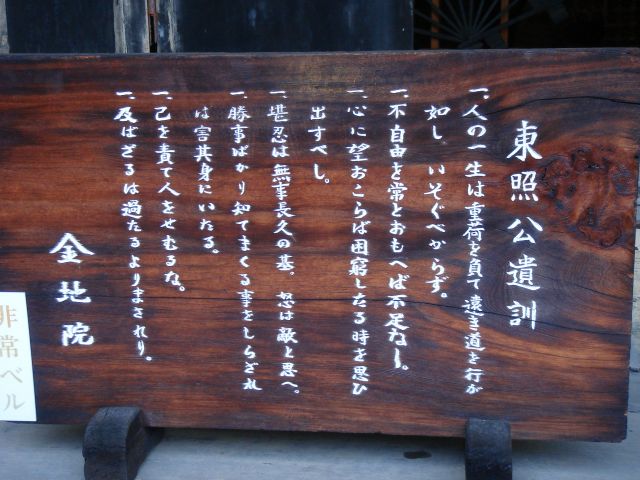 東照公遺訓
一、人の一生は重荷を負て遠き道を行が
如し いそぐべからず。
一、不自由を常とおもへば不足なし。
一、心に望おこらば困窮したる時を思ひ
出すべし。
一、堪忍は無事長久の基。怒は敵と思へ。
一、勝事ばかり知てまくる事をしらざれ
ば害其身にいたる。
一、己を責て人をせむるな。
一、及ばざるは過たるよりまされり。
金地院
非常ベル